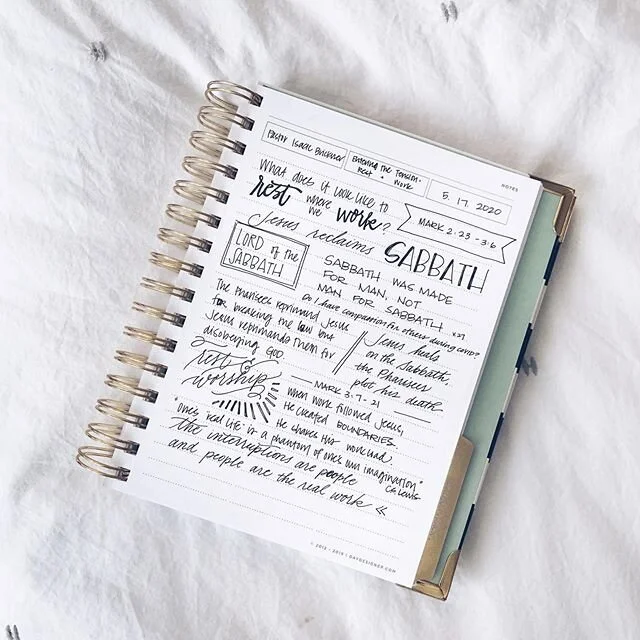 NOTES
Pastor Isaac
Entering the Tension: Rest & Work
5. 17. 2020
What does it look like to
rest where we work?
MARK 2:23 - 3:6
Jesus reclaims SABBATH
LORD of the SABBATH
SABBATH WAS MADE
FOR MAN, NOT
MAN FOR SABBATH v.27
Do I have compassion for others during covid?
The Pharisees reprimand Jesus
for breaking the law but
Jesus reprimands them for
disobeying GOD.
Jesus heals
on the Sabbath,
the Pharisees
plot his death.
rest is
worship
MARK 3:7-21
When work followed Jesus,
He created BOUNDARIES.
He shares His workload
"Ones 'real life' is a phantom of ones own imagination"
CS Lewis
the interruptions are people
and people are the real work <<
© 2012 - 2019 | DAYDESIGNER.COM